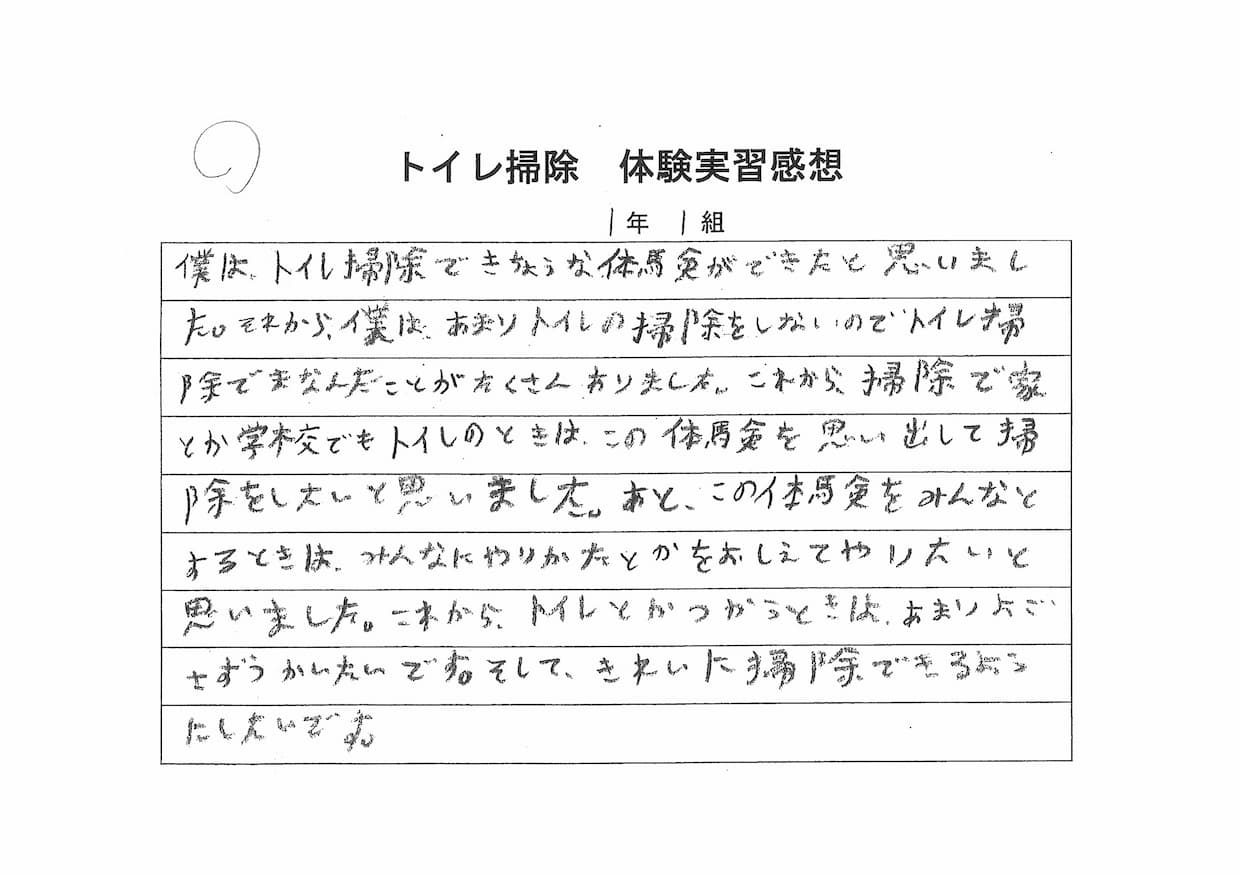 トイレ掃除　体験実習感想
1年 1組
僕は、トイレ掃除できちょうな体験ができたと思いまし
た。それから、僕は、あまりトイレの掃除をしないのでトイレ掃
除でまなんだことがたくさんありました。これから、掃除で家
とか学校でもトイレのときは、この体験を思い出して掃
除をしたいと思いました。あと、この体験をみんなと
するときは、みんなにやりかたとかをおしえてやりたいと
思いました。これから、トイレとかつかうときは、あまりよご
さずつかいたいです。そして、きれいに掃除できるよう
にしたいです。